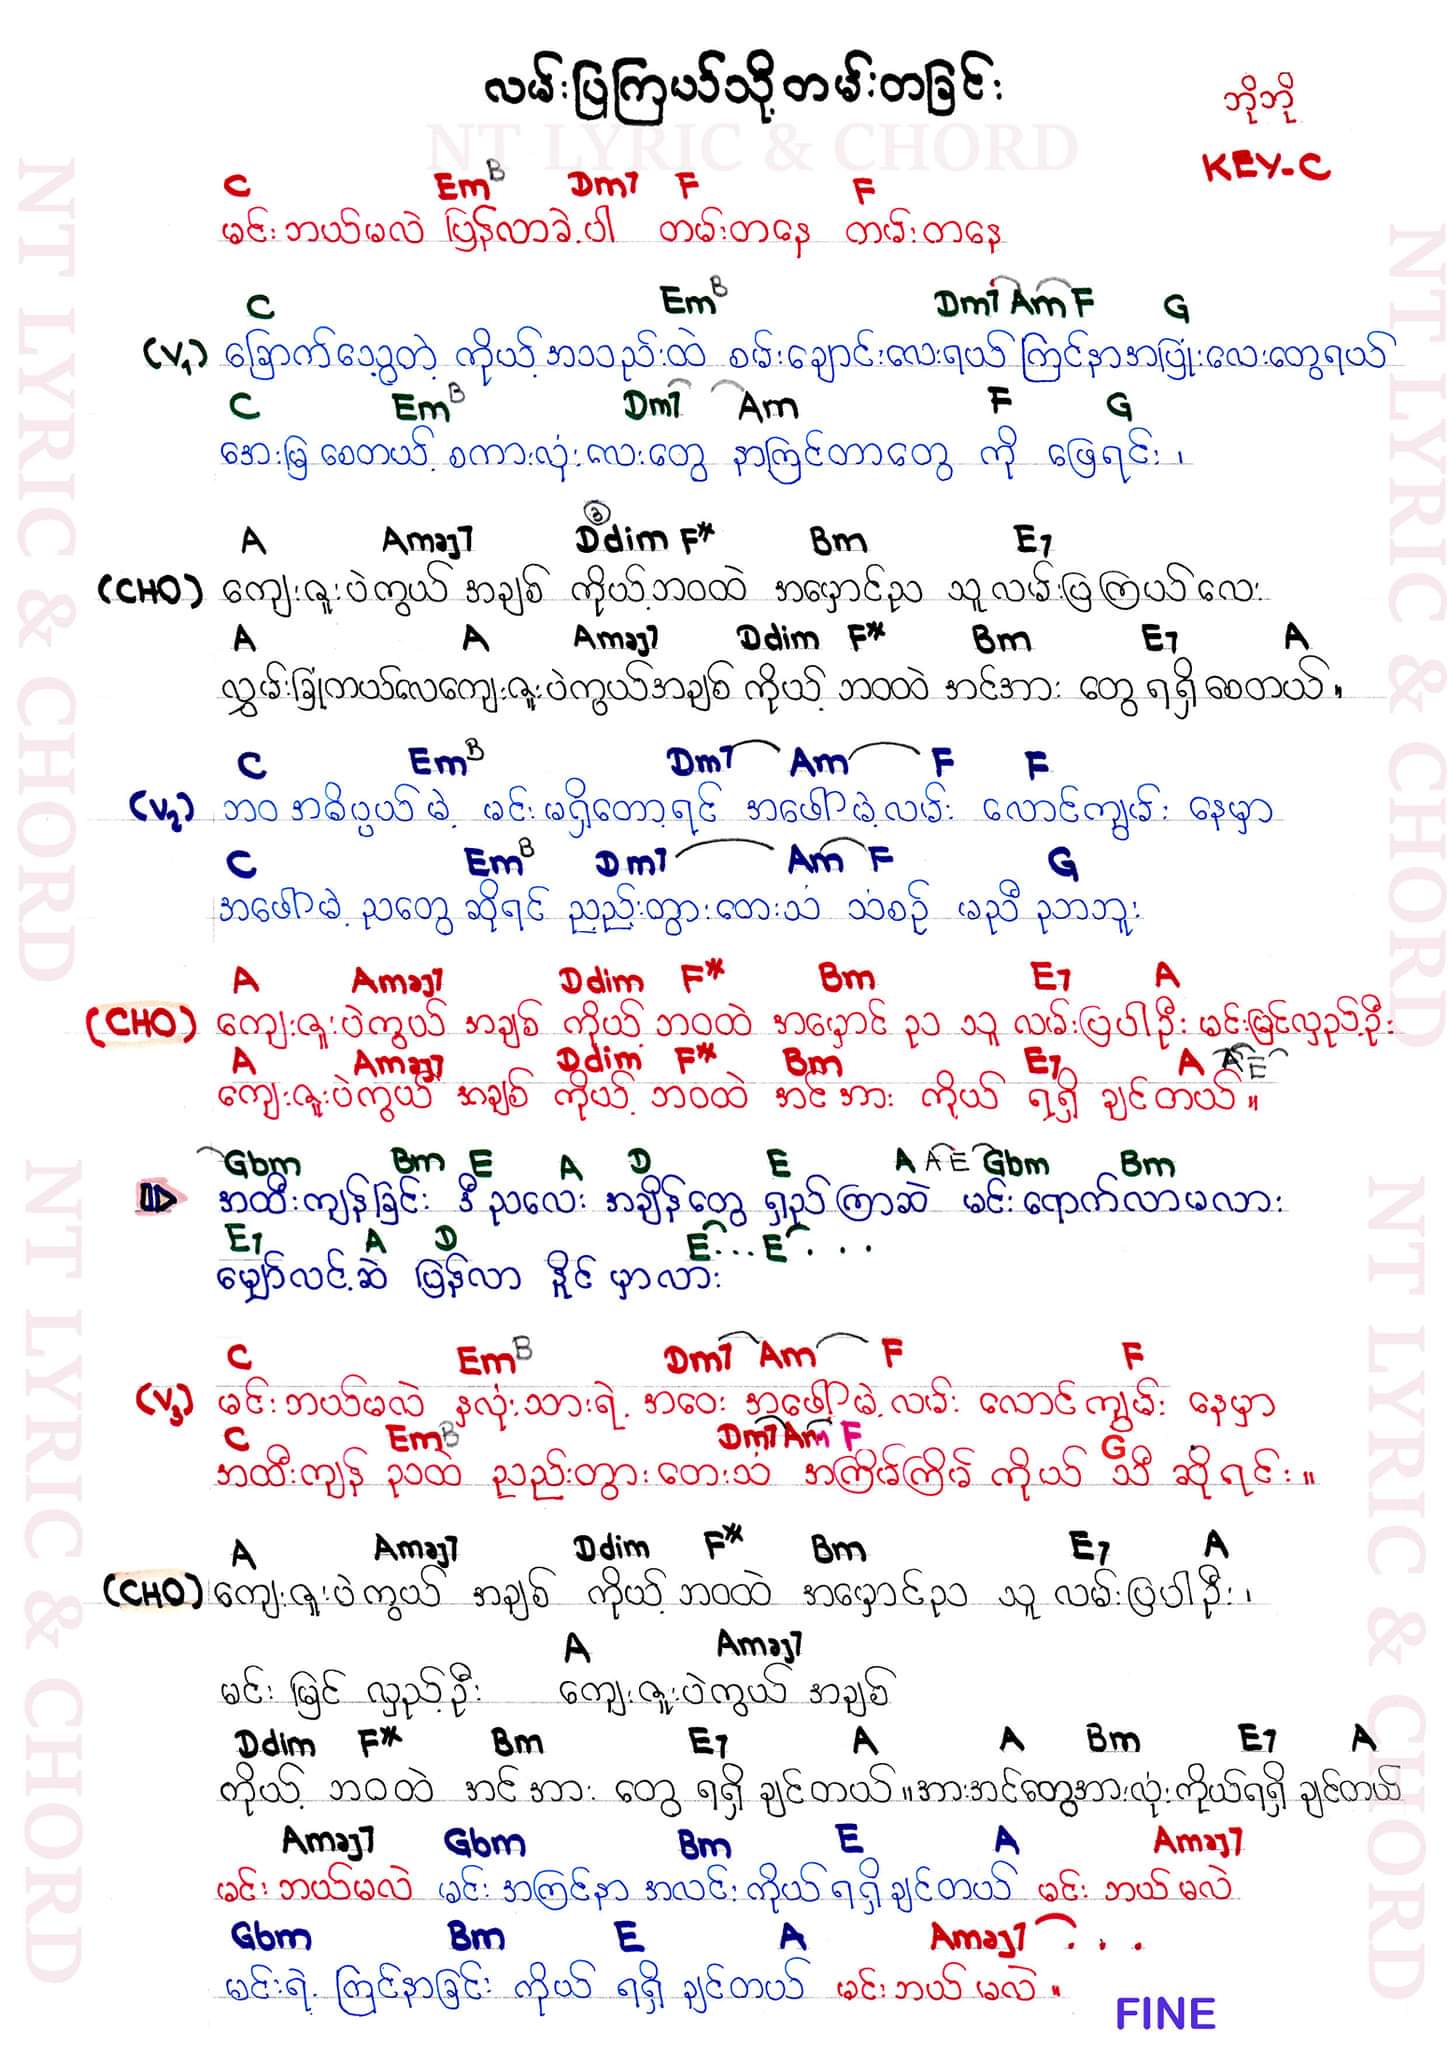 လမ်းပြကြယ်သို့တမ်းတခြင်း
ဘိုဘို
NT LYRIC & CHORD
KEY-C
C Em B Dm7 F F
မင်းဘယ်မလဲ ပြန်လာခဲ့ပါ တမ်းတနေ တမ်းတနေ
C Em B Dm7 Am F G
(V1) ခြောက်သွေ့တဲ့ ကိုယ့်အသည်းထဲ စမ်းချောင်းလေးရယ် ကြင်နာအပြုံးလေးတွေရယ်
C Em B Dm7 Am F G
အေးမြစေတယ် စကားလုံးလေးတွေ နာကြင်တာတွေ ကို ဖြေရင်း ၊
A Amaj7 D 3 dim F* Bm E7
(CHO) ကျေးဇူးပဲကွယ် အချစ် ကိုယ့်ဘဝထဲ အမှောင်ည သူ လမ်းပြကြယ်လေး
A A Amaj7 Ddim F* Bm E7 A
လွှမ်းခြုံကယ်လေကျေးဇူးပဲကွယ်အချစ် ကိုယ့် ဘဝထဲ အင်အား တွေ ရရှိစေတယ် ။
C Em B Dm7 Am F F
(V2) ဘဝ အဓိပ္ပယ်မဲ့ မင်းမရှိတော့ရင် အဖော်မဲ့လမ်း လောင်ကျွမ်း နေမှာ
C Em B Dm7 Am F G
အဖော်မဲ့ ညတွေ ဆိုရင် ညည်းတွားတေးသံ သံစဉ် မညီ ညာဘူး
A Amaj7 Ddim F* Bm E7 A
(CHO) ကျေးဇူးပဲကွယ် အချစ် ကိုယ့် ဘဝထဲ အမှောင် ည သူ လမ်းပြပါဦး မင်းမြင်လှည့်ဦး
A Amaj7 Ddim F* Bm E7 A A E
ကျေးဇူးပဲကွယ် အချစ် ကိုယ့် ဘဝထဲ အင်အား ကိုယ် ရရှိ ချင်တယ် ။
Gbm Bm E A D E A A E Gbm Bm
အထီးကျန်ခြင်း ဒီညလေး အချိန်တွေ ရှည်ကြာဆဲ မင်းရောက်လာမလား
E7 A D E... E...
မျှော်လင့်ဆဲ ပြန်လာ နိုင် မှာလား
C Em B Dm7 Am F F
(V3) မင်းဘယ်မလဲ နှလုံးသားရဲ့ အဝေး အဖော်မဲ့လမ်း လောင်ကျွမ်း နေမှာ
C Em B Dm7 Am F G
အထီးကျန် ညထဲ ညည်းတွားတေးသံ အကြိမ်ကြိမ် ကိုယ် သီ ဆိုရင်း ။
A Amaj7 Ddim F* Bm E7 A
(CHO) ကျေးဇူးပဲကွယ် အချစ် ကိုယ့် ဘဝထဲ အမှောင်ည သူ လမ်းပြပါဦး ၊
A Amaj7
မင်း မြင် လှည့်ဦး ကျေးဇူးပဲကွယ် အချစ်
Ddim F* Bm E7 A A Bm E7 A
ကိုယ့် ဘဝထဲ အင်အား တွေ ရရှိ ချင်တယ် ။ အားအင်တွေအားလုံး ကိုယ်ရရှိ ချင်တယ်
Amaj7 Gbm Bm E A Amaj7
မင်းဘယ်မလဲ မင်းအကြင်နာ အလင်း ကိုယ်ရရှိချင်တယ် မင်းဘယ်မလဲ
Gbm Bm E A Amaj7 . . .
မင်းရဲ့ ကြင်နာခြင်း ကိုယ် ရရှိ ချင်တယ် မင်းဘယ်မလဲ ။
FINE
NT LYRIC & CHORD
NT LYRIC & CHORD
NT LYRIC & CHORD
NT LYRIC & CHORD